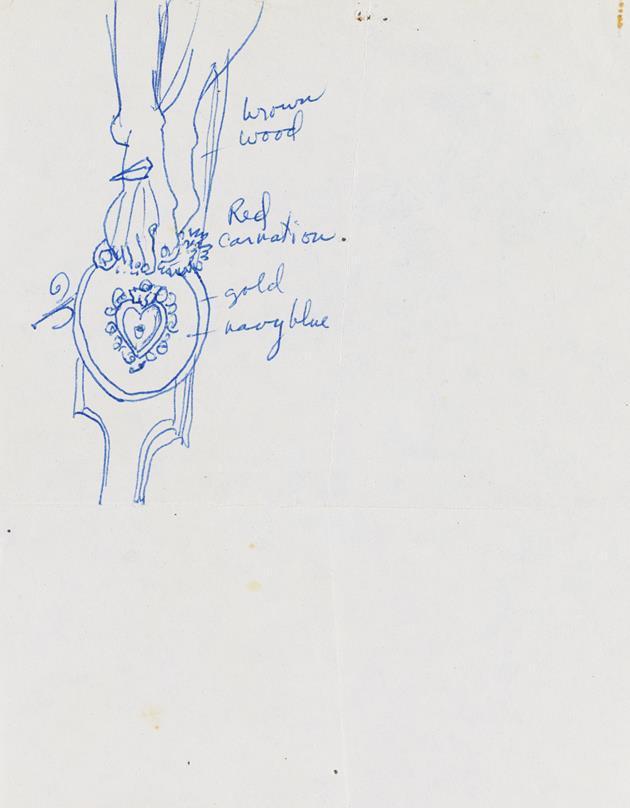 brown
wood
Red
carnation
gold
navy blue